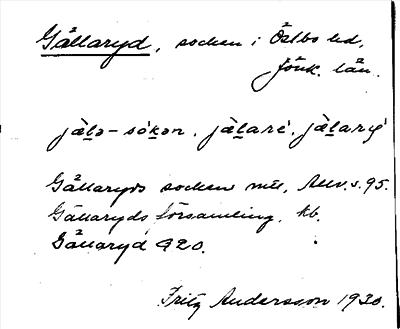 Gällaryd, socken i Östbo hd,
Jönk. län.
jälə-sókən. jälaré. jälarý
Gällaryds sockens mtl, Allv. s. 95.
Gällaryds församling. kb.
Gällaryd G20.
Fritz Andersson 1930.